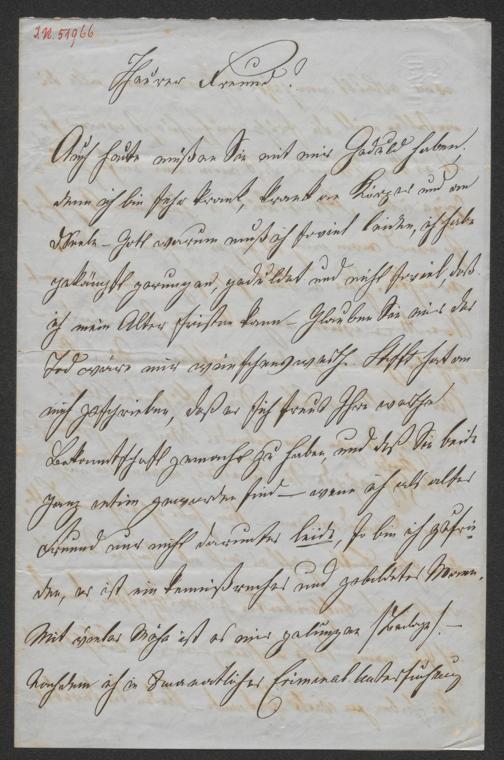 I.N. 51966
Theurer Freund!
Auch heute müßen Sie mit mir Geduld haben,
denn ich bin sehr krank, krank an Körper und an
Seele – Gott warum muß ich soviel leiden, ich habe
gekämpft gerungen, geduldet und nicht soviel, daß
ich mein Alter fristen kann – Glauben Sie mir der
Tod wäre mir wünschenswerth. hat an
mich geschrieben, daß er sich freut Ihre werthe
Bekanntschaft gemacht zu haben, und daß Sie beide
ganz intim geworden sind – wenn ich als alter
Freund nur nicht darunter leide, so bin ich zufrie-
den, er ist ein kenntnißreicher und gebildeter Mann.
Mit vieler Mühe ist es mir gelungen –
Nachdem ich in monatlicher Criminal Untersuchung